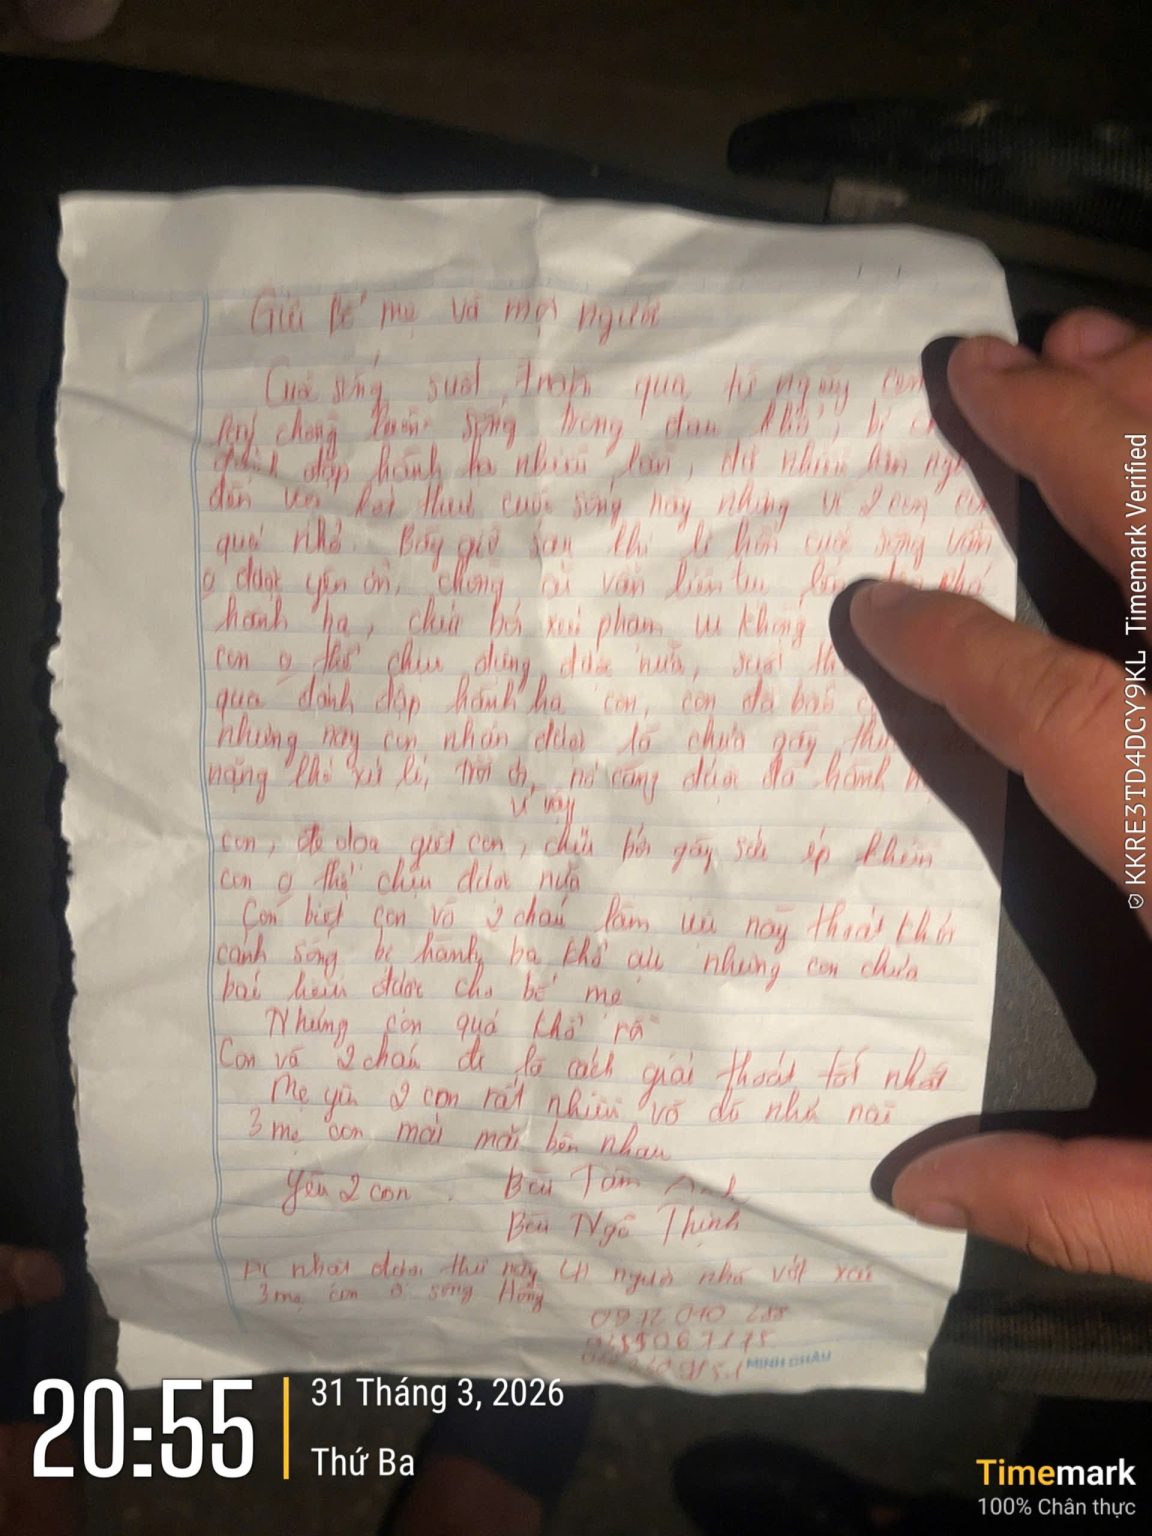 Gửi bố mẹ và mọi người
Cuộc sống suốt qua từ ngày con
lấy chồng luôn sống trong đau khổ, bị
đánh đập hành hạ nhiều lần, đã nhiều lần
đến việc kết thúc cuộc sống này nhưng vì 2 con còn
quá nhỏ. Bây giờ sau khi li hôn cuộc sống vẫn
o được yên ổn, chồng cũ vẫn liên tục phá
hành hạ, chửi bới xúc phạm vu khống
con o thể chịu đựng được nữa, suốt
qua đánh đập hành hạ con, con đã báo
nhưng nay con nhận được là chưa gây
nặng khó xử lí, trời ơi, nó càng được đà hành
vì vậy
con, đe dọa giết con, chửi bới gây sức ép khiến
con o thể chịu được nữa
Con biết con và 2 cháu làm việc này thoát khỏi
cảnh sống bị hành hạ khổ đau nhưng con chưa
báo hiếu được cho bố mẹ
Nhưng con quá khổ rồi
Con và 2 cháu đi là cách giải thoát tốt nhất
Mẹ yêu 2 con rất nhiều và đó như nào
3 mẹ con mãi mãi bên nhau
Yêu 2 con. Bếu Tâm Anh
Bếu Ngô Thịnh
Ai nhặt được thư này gọi người nhà vớt xác
3 mẹ con ở sông Hồng
0972 010 288
MINH CHÂU
20:55
31 Tháng 3, 2026
Thứ Ba
Timemark
100% Chân thực
KKRE3TD4DCY9KL Timemark Verified